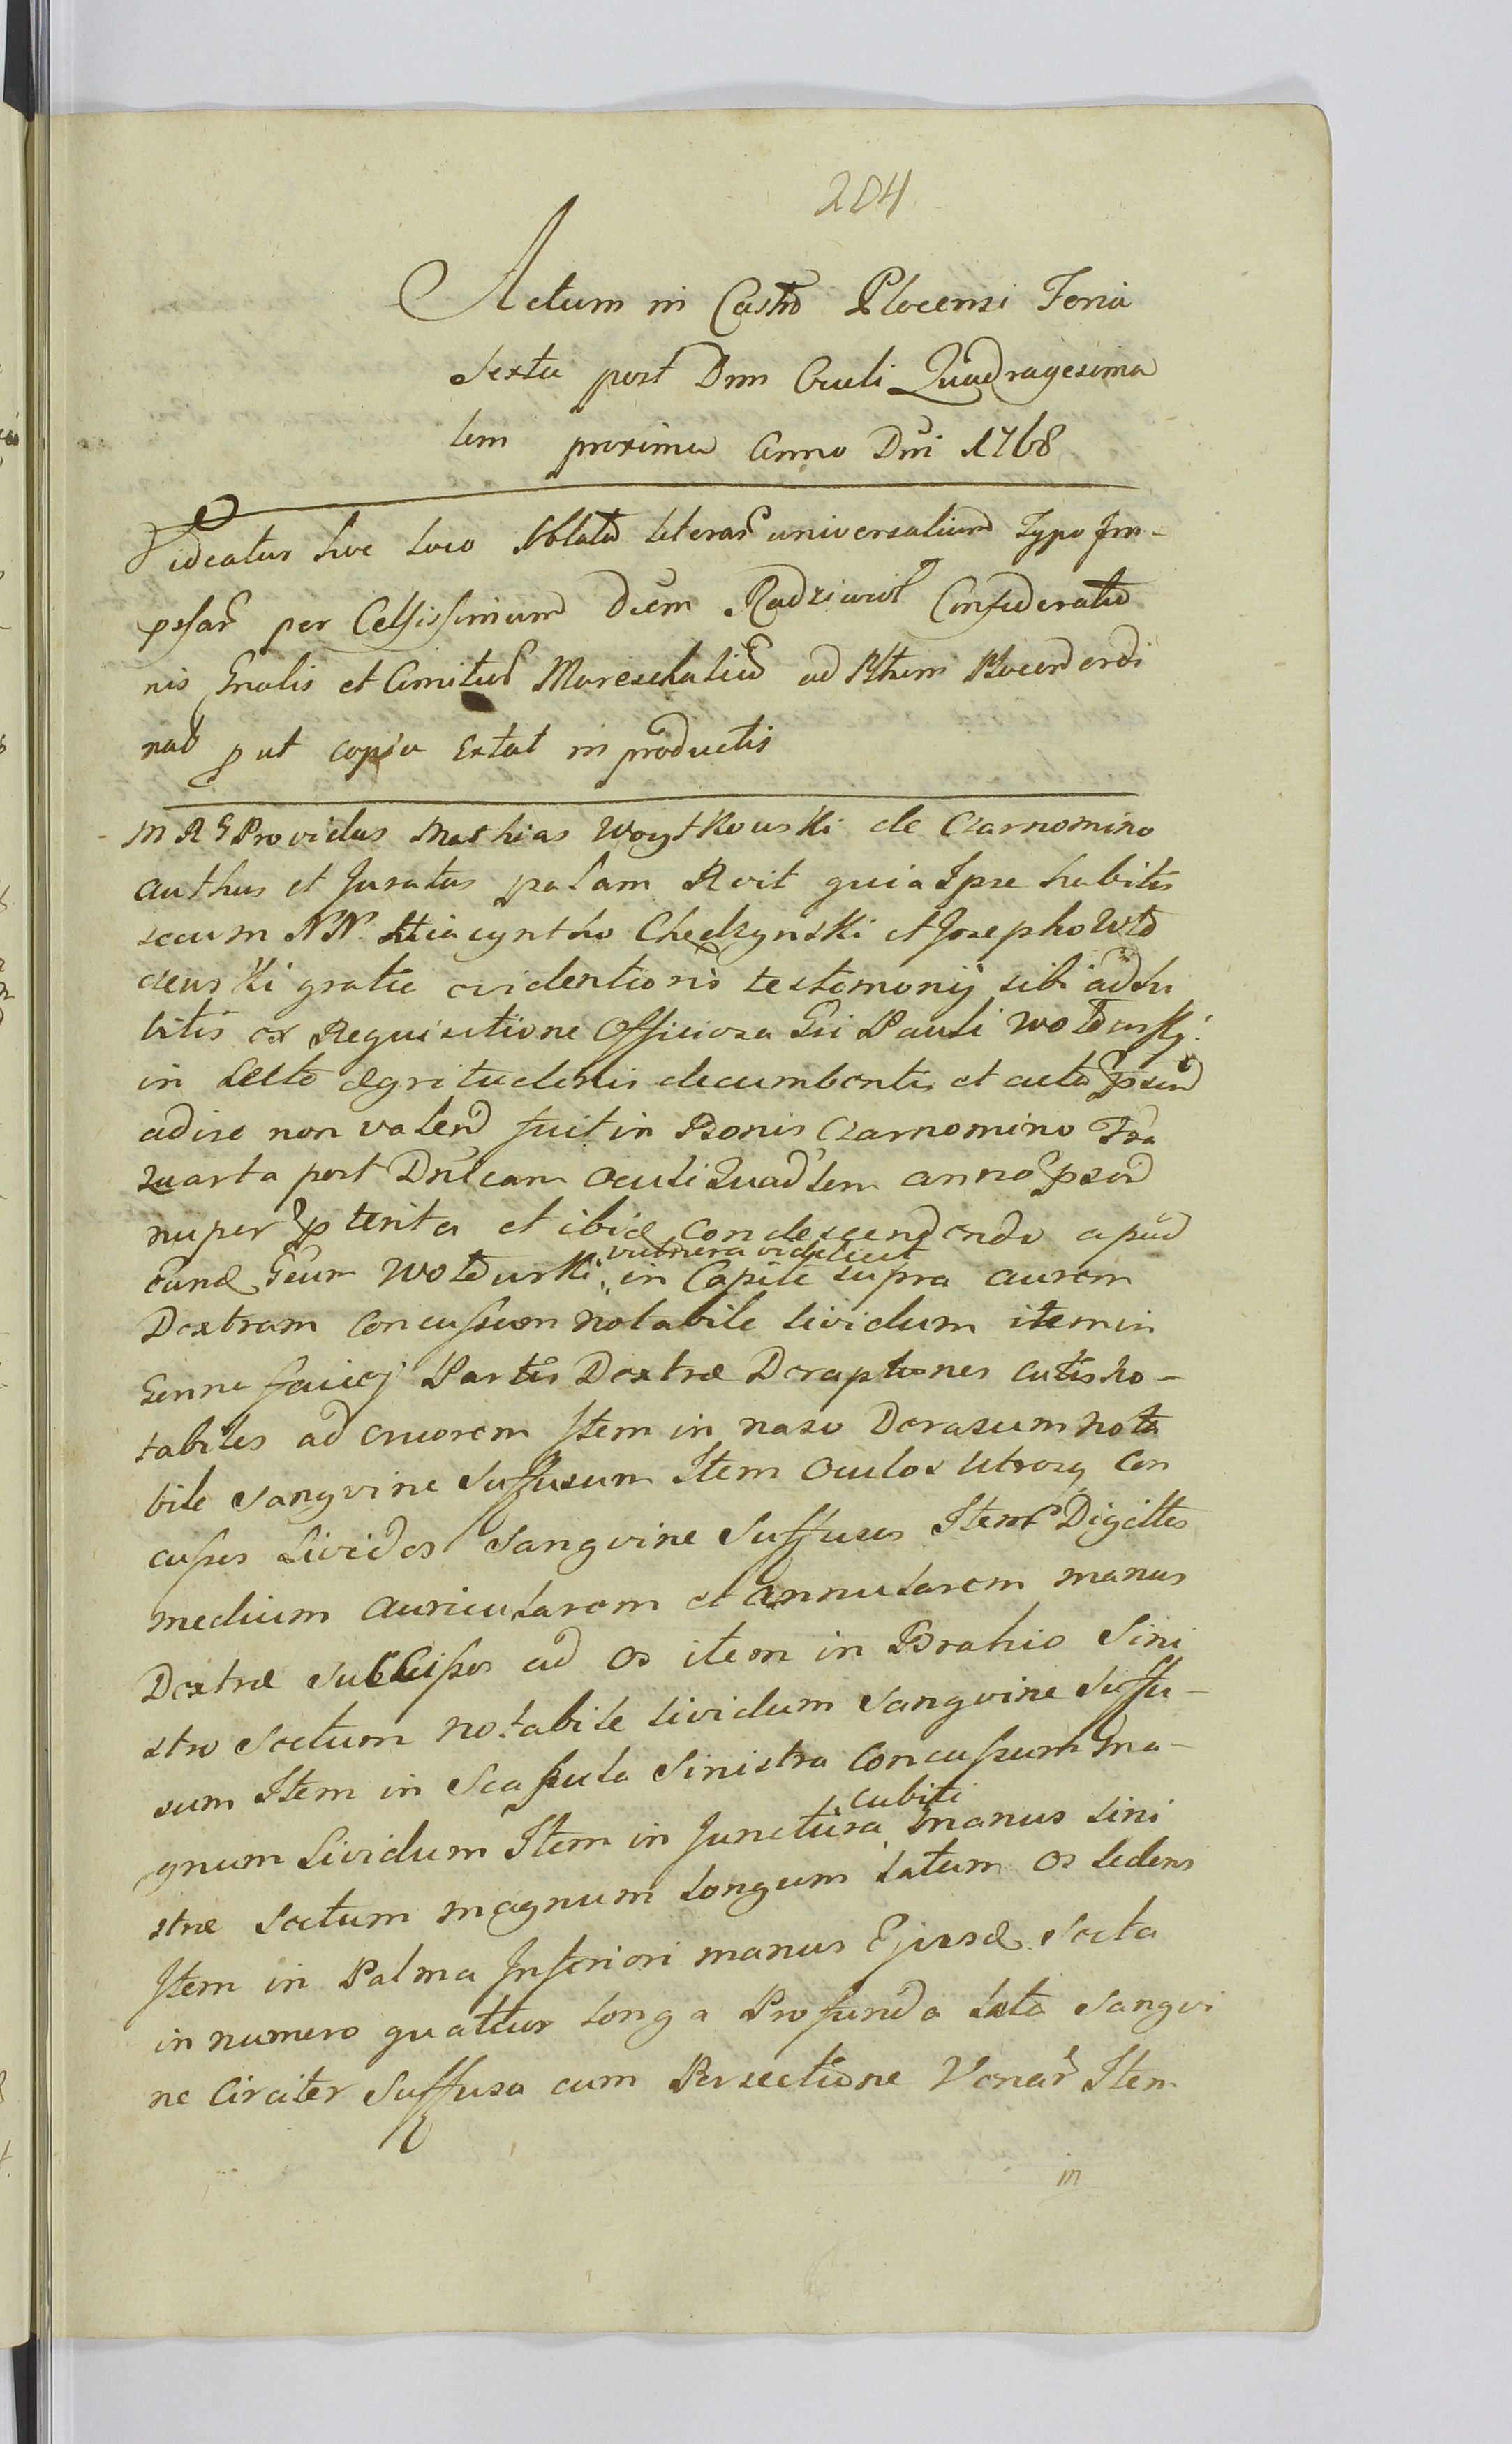 204
Actum in Castro Plocensi Feria
Sexta post Dnm Oculi Quadragesima
lem proxima Anno Dni 1768
Videatur hoc loco Oblata literar universalium Typo Im-
pssar per Celsissimum Dcem Radziwił Confederatio
nis Gnalis et Comitior Mareschalcum ad Pttum Plocen ordi
nat put copia Extat in productis
M R G Providus Mathias Woytkowski de Czarnomino
authus et Juratus palam Rvit quia Ipse habitis
secum NN. Hiacyntho Chedzynski et Josepho Wło
dkowski gratie evidentioris testomonij sibi adhi
bitis ex Requisitione Officiosa Gsi Pauli Wołdurskj
in Lecto Ægritudinis decumbentis et acta psend
adire non valend fuit in Bonis Czarnomino Fra
Quarta post Dnicam Oculi Quadlem anno psend
nuper pterita et ibid condescendendo apud
eund Gsum Wołdurski in Capite supra aurem
vulnera videlicet
Dextram Concussum notabile lividum item in
Genna faiicj Partis Dextræ Deraptiones cutis no-
tabiles ad cruorem Item in naso Derasum nota
bile Sangvine Suffusum Item Oculos Utrosq Con
cussos Lividos Sangvine Suffusos Item Digittos
medium Auricularem et Annularem manus
Dextræ Succissos ad Os item in Brahio Sini
stro Sectum notabile lividum Sangvine Suffu-
sum Item in Scapula Sinistra Concussum ma-
gnum Lividum Item in Junctura manus Sini
cubiti
stræ Sectum magnum longum latum Os ledens
Item in Palma Inferiori manus Ejusd Secta
in numero quattuor longa Profunda lata Sangvi
ne Circiter Suffusa cum Persectione Venar Item
in